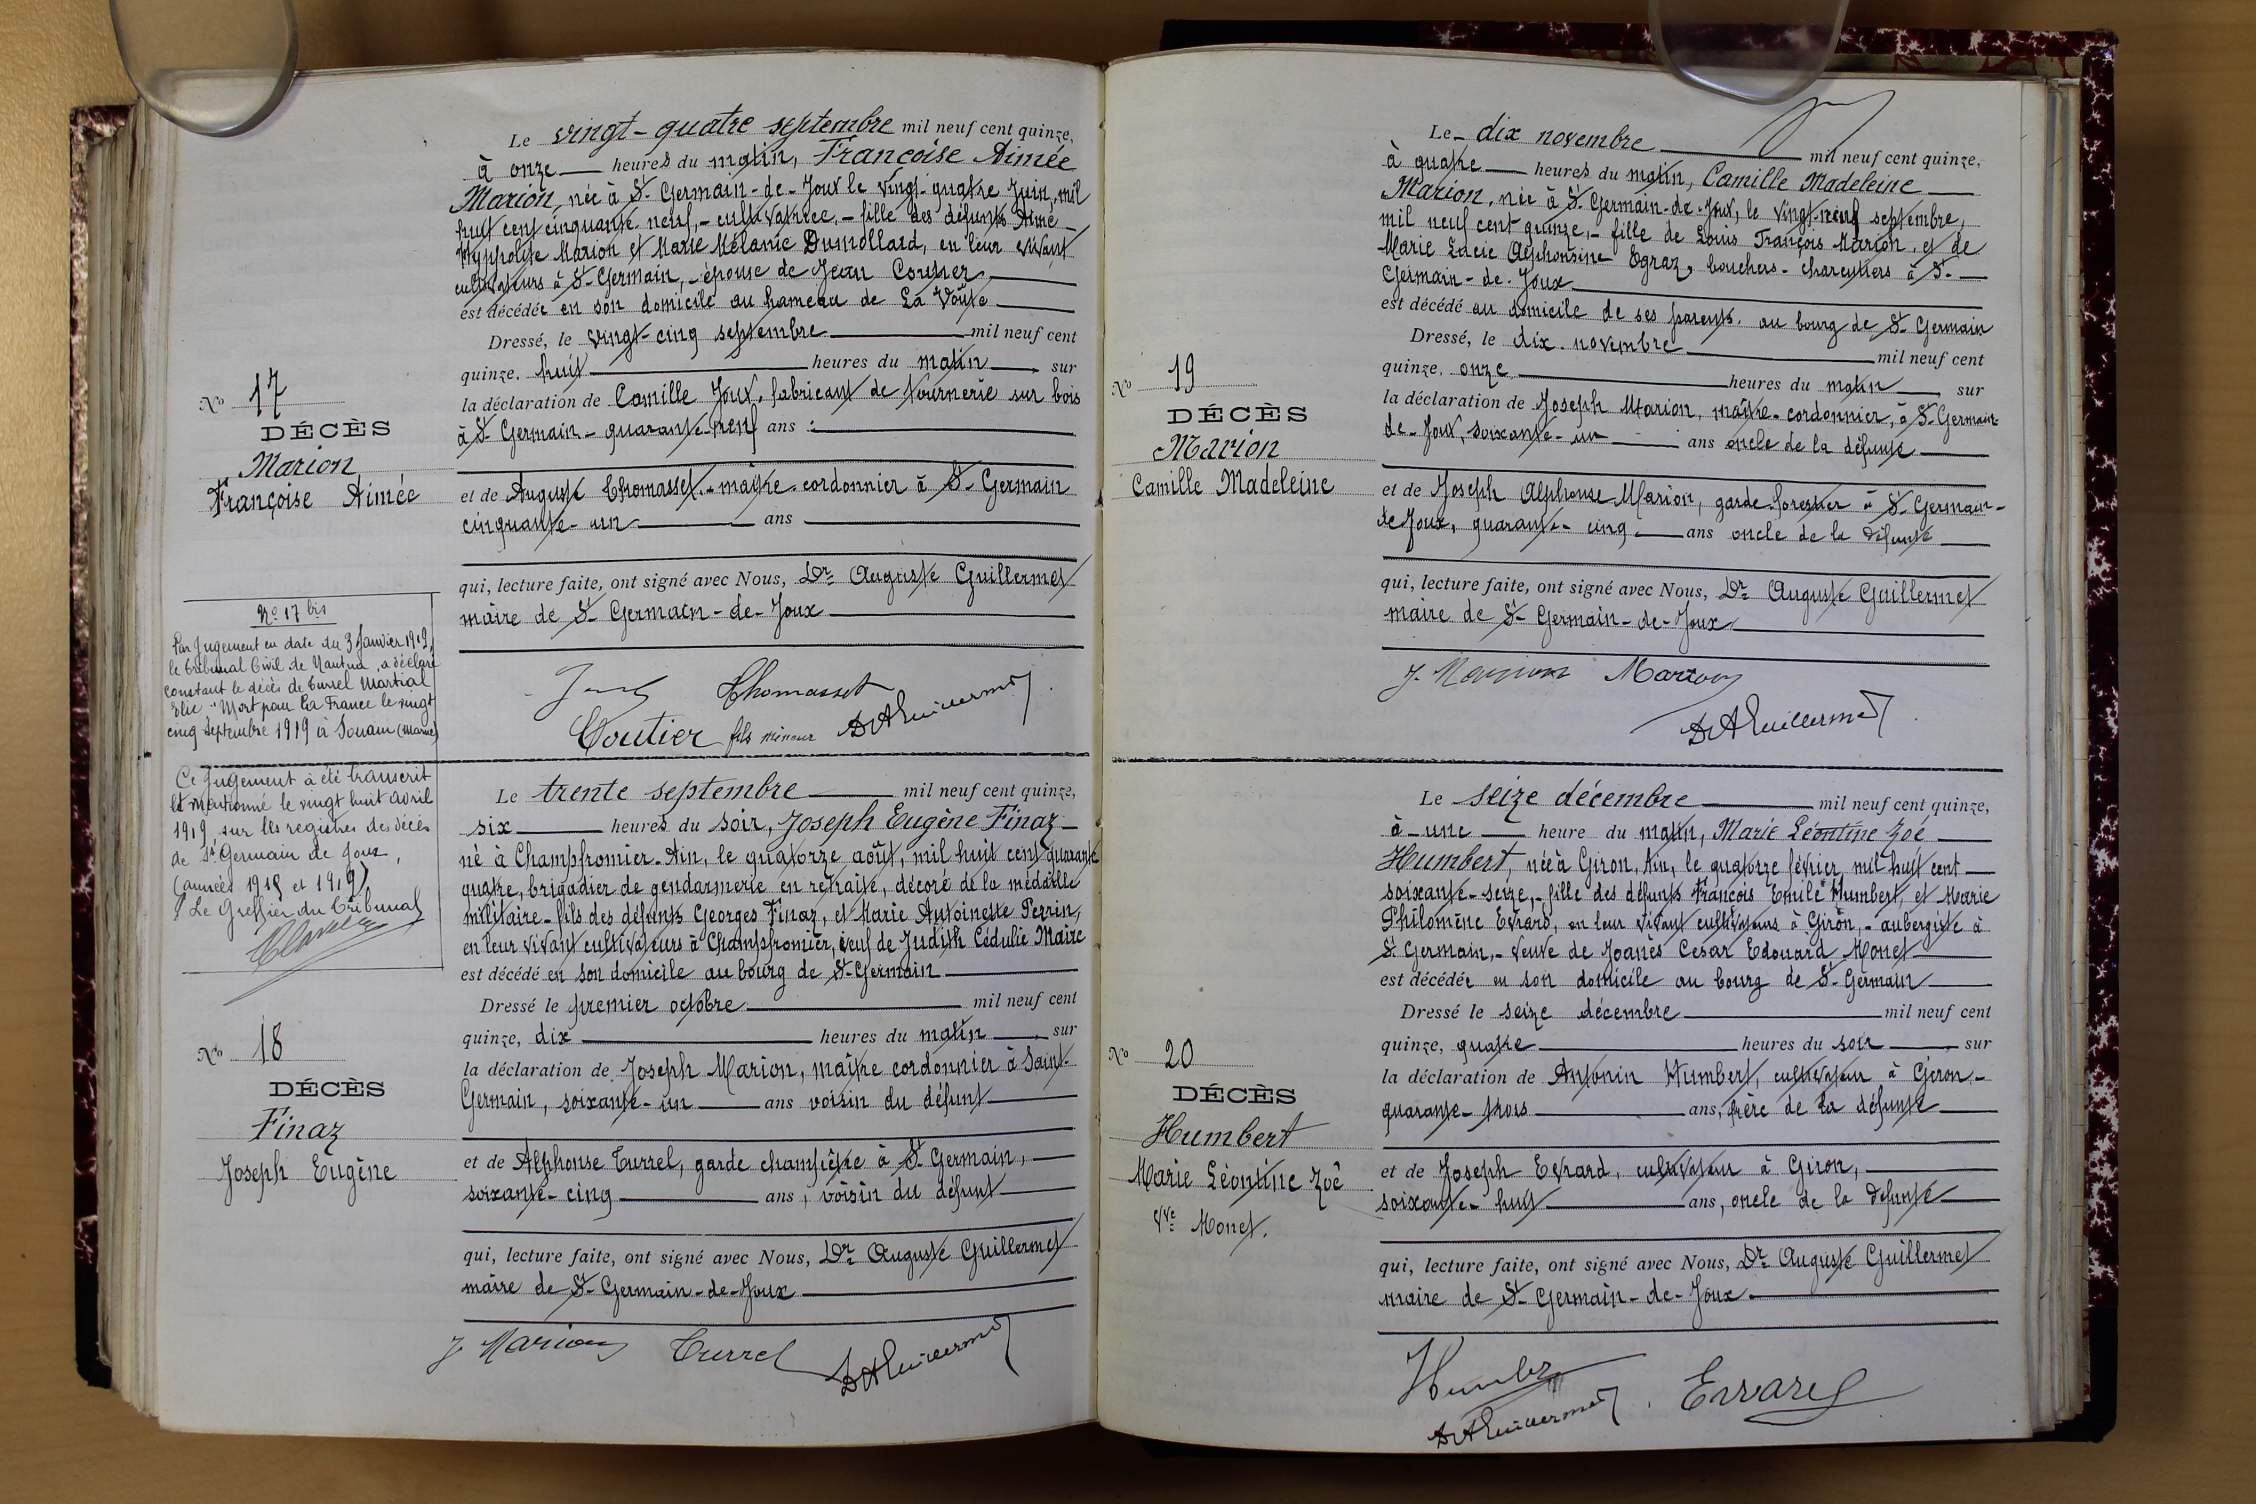 Le vingt-quatre septembre mil neuf cent quinze,
à onze heures du matin, Françoise Aimée
Marion, née à St Germain-de-Joux le vingt-quatre Juin, mil
huit cent cinquante-neuf, - cultivatrice, - fille des défunts Aimé
Hyppolite Marion et Marie Mélanie Dumollard, en leur vivant
cultivateurs à St Germain, - épouse de Jean Coutier,
est décédée en son domicile au hameau de La Voûte
Dressé, le vingt-cinq septembre mil neuf cent
quinze. huit heures du matin, sur
la déclaration de Camille Joux, fabricant de tournerie sur bois
à St Germain - quarante-neuf ans :
et de Auguste Thomasset, - maître-cordonnier à St Germain
cinquante-un ans
qui, lecture faite, ont signé avec Nous, Dr Auguste Guillermet
maire de St Germain-de-Joux
Joux Thomasset
Coutier fils mineur Dr A Guillermet
No 17
DÉCÈS
Marion
Françoise Aimée
No 17 bis
Par Jugement en date du 3 Janvier 1919,
le tribunal Civil de Nantua, a déclaré
constant le décès de Turrel Martial
Elie "Mort pour la France le vingt
cinq Septembre 1919 à Souain (Marne)
Ce Jugement à été transcrit
et mentionné le vingt huit avril
1919 sur les registres des décès
de St Germain de Joux,
(années 1915 et 1919)
Le Greffier du Tribunal
Le trente septembre mil neuf cent quinze,
six heures du soir, Joseph Eugène Finaz
né à Champfromier-Ain, le quatorze août, mil huit cent quarante
quatre, brigadier de gendarmerie en retraite, décoré de la médaille
militaire - fils des défunts Georges Finaz, et Marie Antoinette Perrin,
en leur vivant cultivateurs à Champfromier, veuf de Judith Cédulie Maire
est décédé en son domicile au bourg de St Germain
Dressé le premier octobre mil neuf cent
quinze, dix heures du matin, sur
la déclaration de Joseph Marion, maître cordonnier à Saint-
Germain, soixante-un ans voisin du défunt
et de Alphonse Turrel, garde champêtre à St Germain,
soixante-cinq ans, voisin du défunt
qui, lecture faite, ont signé avec Nous, Dr Auguste Guillermet
maire de St Germain-de-Joux
J. Marion Turrel Dr A Guillermet
No 18
DÉCÈS
Finaz
Joseph Eugène
Le dix novembre mil neuf cent quinze,
à quatre heures du matin, Camille Madeleine
Marion, née à St Germain-de-Joux, le vingt-neuf septembre,
mil neuf cent quinze, - fille de Louis François Marion, et de
Marie Lucie Alphonsine Egraz, bouchers-charcutiers à St
Germain-de-Joux
est décédé au domicile de ses parents. au bourg de St Germain
Dressé, le dix novembre mil neuf cent
quinze, onze heures du matin sur
la déclaration de Joseph Marion, maître-cordonnier, à St Germain-
de-Joux, soixante-un ans oncle de la défunte
et de Joseph Alphonse Marion, garde-forestier à St Germain-
de Joux, quarante-cinq ans oncle de la défunte
qui, lecture faite, ont signé avec Nous, Dr Auguste Guillermet
maire de St Germain-de-Joux
J. Marion Marion
Dr A Guillermet
No 19
DÉCÈS
Marion
Camille Madeleine
Le seize décembre mil neuf cent quinze,
à une heure du matin, Marie Léontine Zoé
Humbert, née à Giron, Ain, le quatorze février, mil huit cent
soixante-seize, - fille des défunts François Emile Humbert, et Marie
Philomène Evrard, en leur vivant cultivateurs à Giron, - aubergiste à
St Germain, - veuve de Joanès César Edouard Monet
est décédée en son domicile au bourg de St Germain
Dressé le seize décembre mil neuf cent
quinze, quatre heures du soir, sur
la déclaration de Antonin Humbert, cultivateur à Giron,
quarante-trois ans, frère de la défunte
et de Joseph Evrard, cultivateur à Giron,
soixante-huit ans, oncle de la défunte
qui, lecture faite, ont signé avec Nous, Dr Auguste Guillermet
maire de St Germain-de-Joux
Humbert
Dr A Guillermet. Evrard
No 20
DÉCÈS
Humbert
Marie Léontine Zoé
Vve Monet.